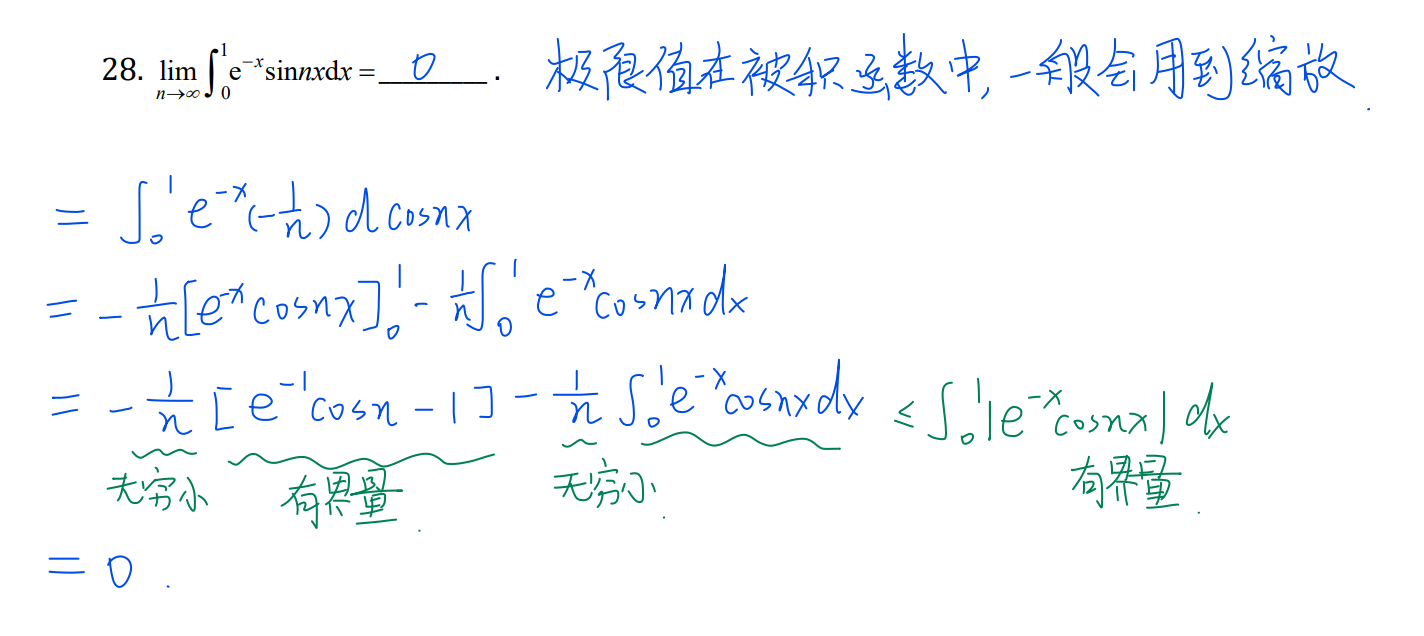 28. lim_{n→∞} ∫_0^1 e^{-x} sinnxdx = 0 . 极限值在被积函数中, 一般会用到缩放.
= ∫_0^1 e^{-x} (-1/n) d cosnx
= -1/n [e^{-x} cosnx]_0^1 - 1/n ∫_0^1 e^{-x} cosnx dx
= -1/n [e^{-1} cosn - 1] - 1/n ∫_0^1 e^{-x} cosnx dx ≤ ∫_0^1 |e^{-x} cosnx| dx
无穷小 有界量. 无穷小. 有界量.
= 0.